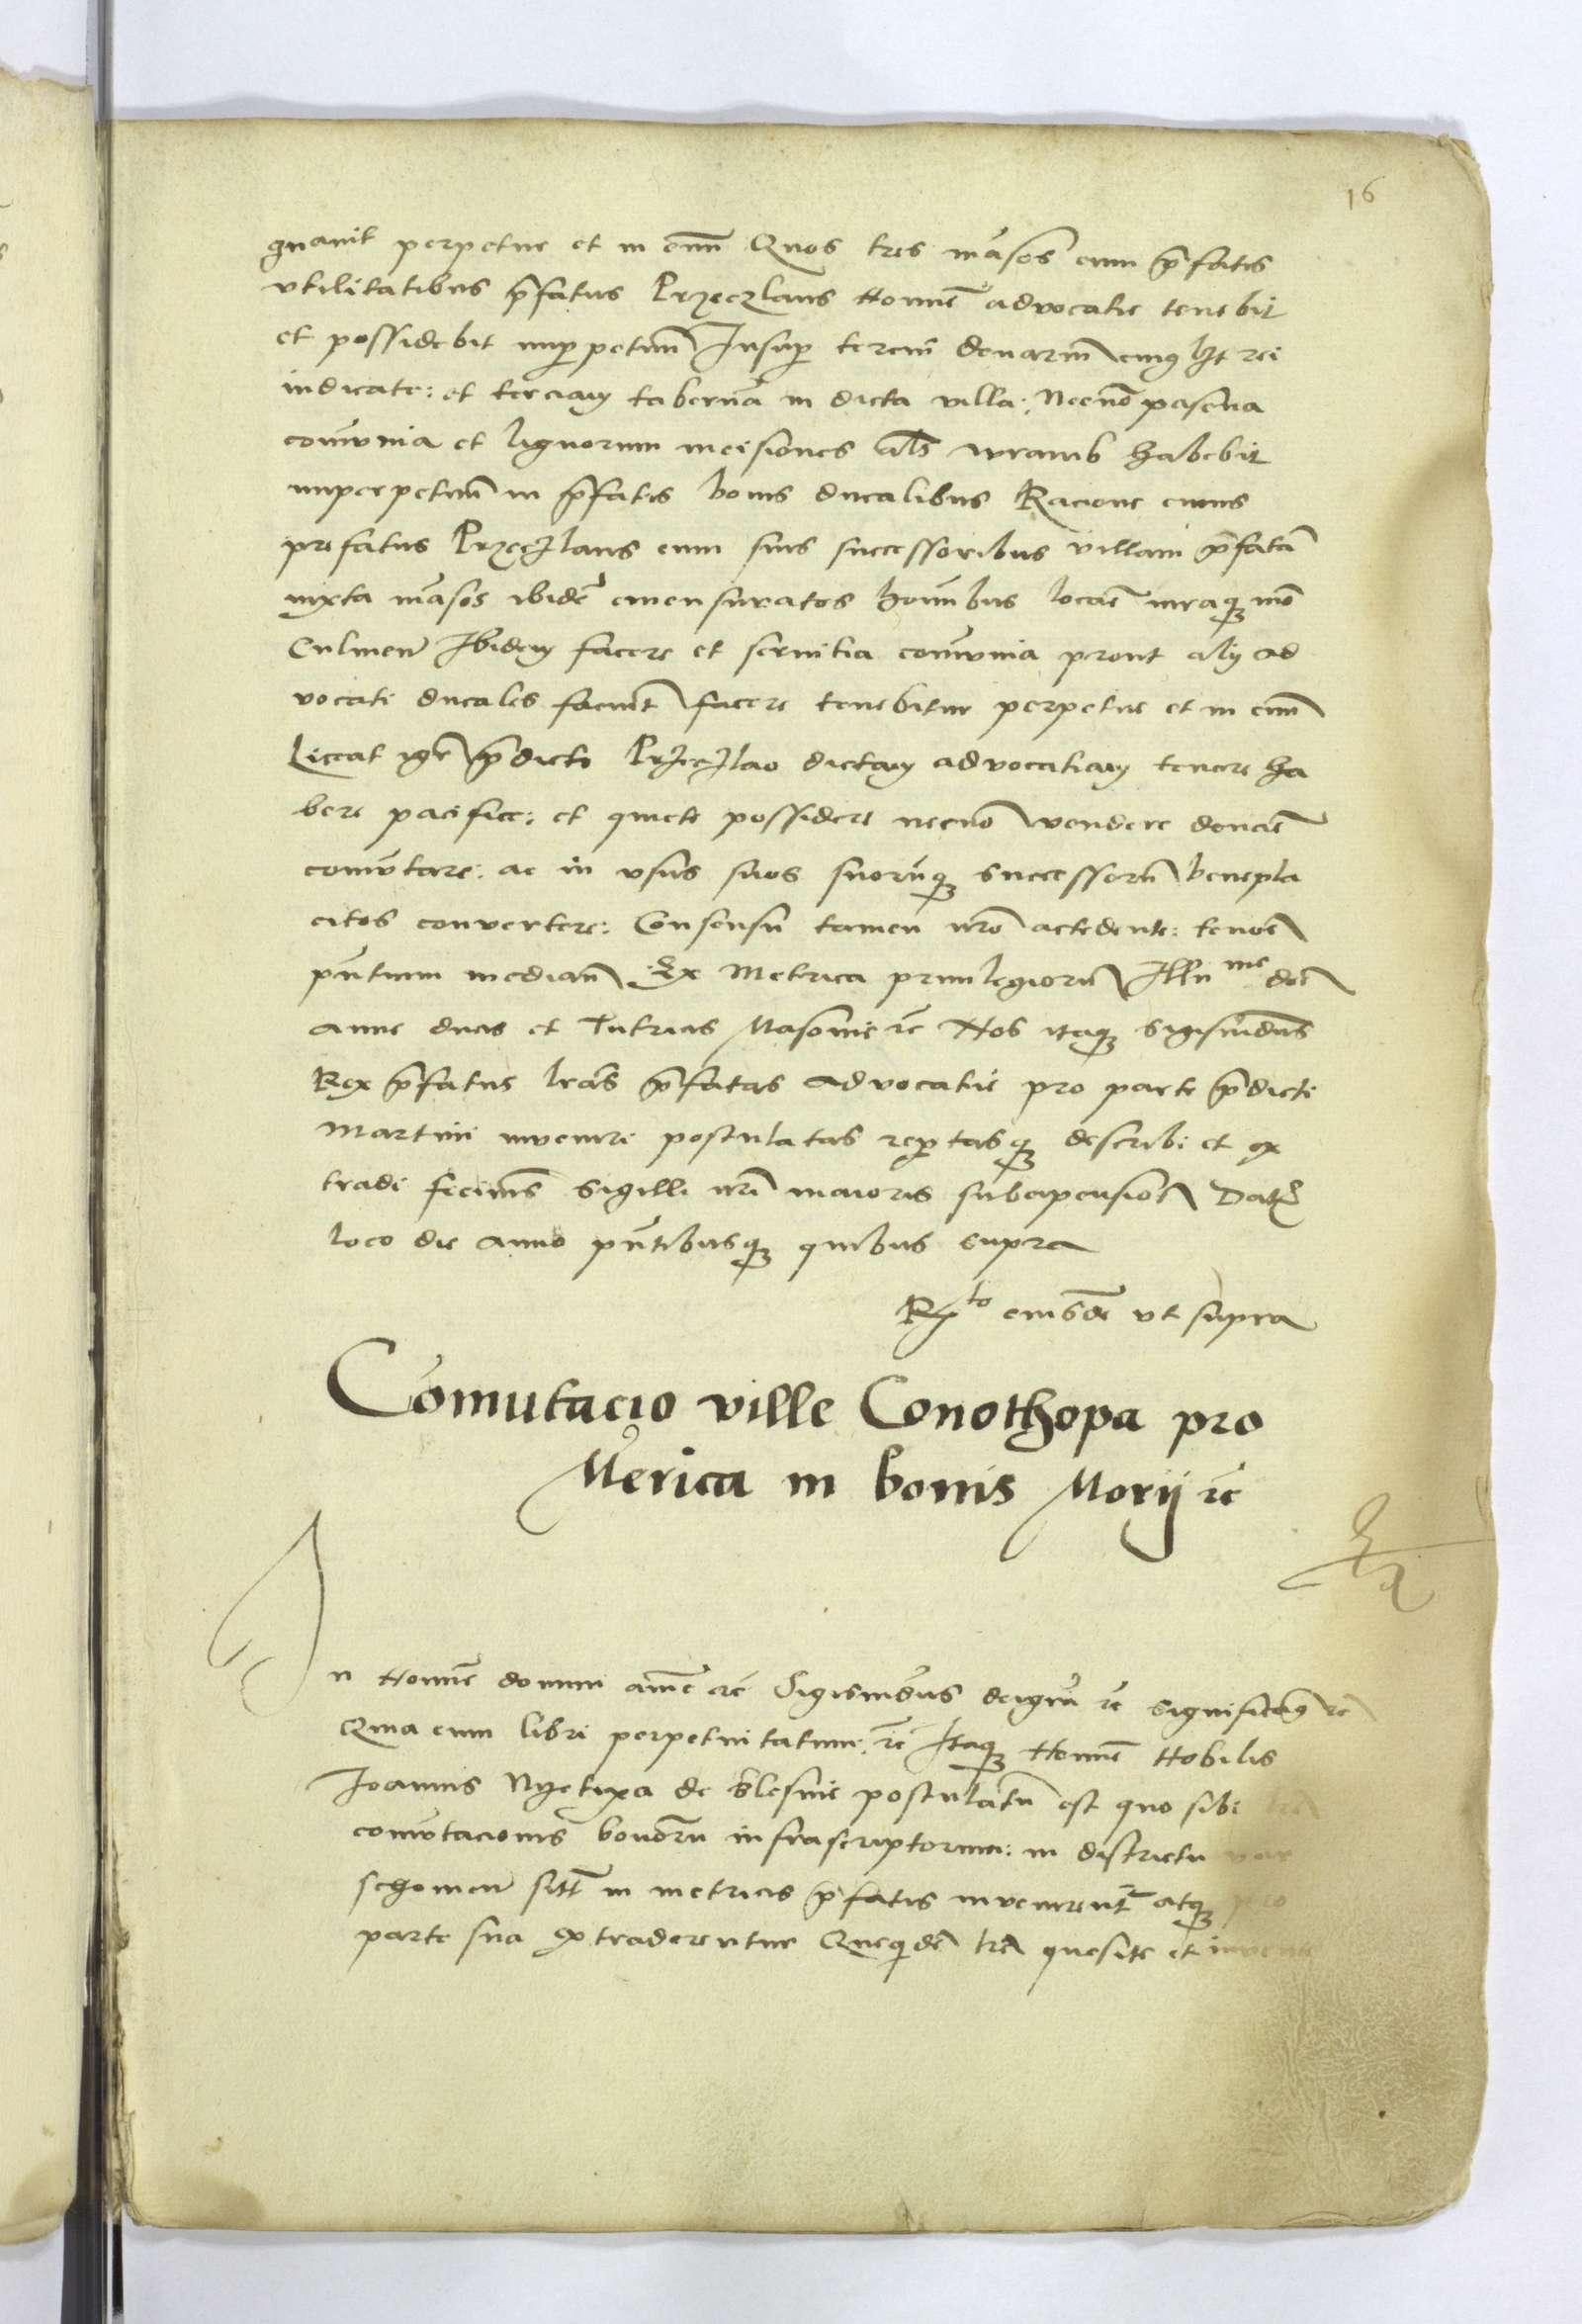 16
gnavit perpetue et in evum Quos tres mansos cum p̄fatis
vtilitatibus p̄fatus Przeczlaus nomīe advocatie tenebit
et possidebit imperpetuū Insuper terciū denariū cuiuslibet rei
iudicate: et terciam tabernā in dicta villa: Necnō pascua
com̄unia et lignorum incisiones als wramb habebit
imperpetuū in p̄fatis bonis ducalibus Racione cuius
prefatus Przeczlaus cum suis successoribus villam p̄fatā
iuxta māsos ibidē emensuratos homībus locare iuraq3 mō
Culmen̄ Ibidem facere et servitia com̄unia prout alij ad
vocati ducales faciunt facere tenebitur perpetue et in evū
Liceat igr̄ p̄dicto Przeczlao dictam advocatiam tenere ha
bere pacifice: et quiete possidere necnō vendere donare
com̄utare: ac in vsus suos suorūq3 successorū benepla
citos convertere: Consensu tamen nr̄o accedente: tenore
pn̄tium median̄ Ex Metrica privilegiorū Illu me dn̄e
Anne ducis et Tutricis Masovie rc̄ Nos itaq3 Sigismūdus
Rex p̄fatus lr̄as p̄fatas advocatie pro parte p̄dicti
Martini inveniri postulatas repertasq3 describi et ex
tradi fecimus sigilli nr̄i maioris subappensione Dat̄
loco die anno pn̄tibusq3 quibus supra
R to eiusdē vt supra
Com̄utacio ville Conothopa pro
Merica in bonis Morij rc̄
In Nomīe domini amē rc̄ Sigismūdus dei gr̄a rc̄ Significamus rc̄
Quia cum libri perpetuitatum: rc̄ Itaq3 Nomīe Nobilis
Joannis Nyetixa de Blesnie postulatū est quo sibi lr̄e
com̄utacionis bonorū infrascriptorum: in districtu var
schovien̄ sitt̄ in metricis p̄fatis invenirent̄ atq3 pro
parte sua extraderentur Quequidē lr̄e quesite et invente